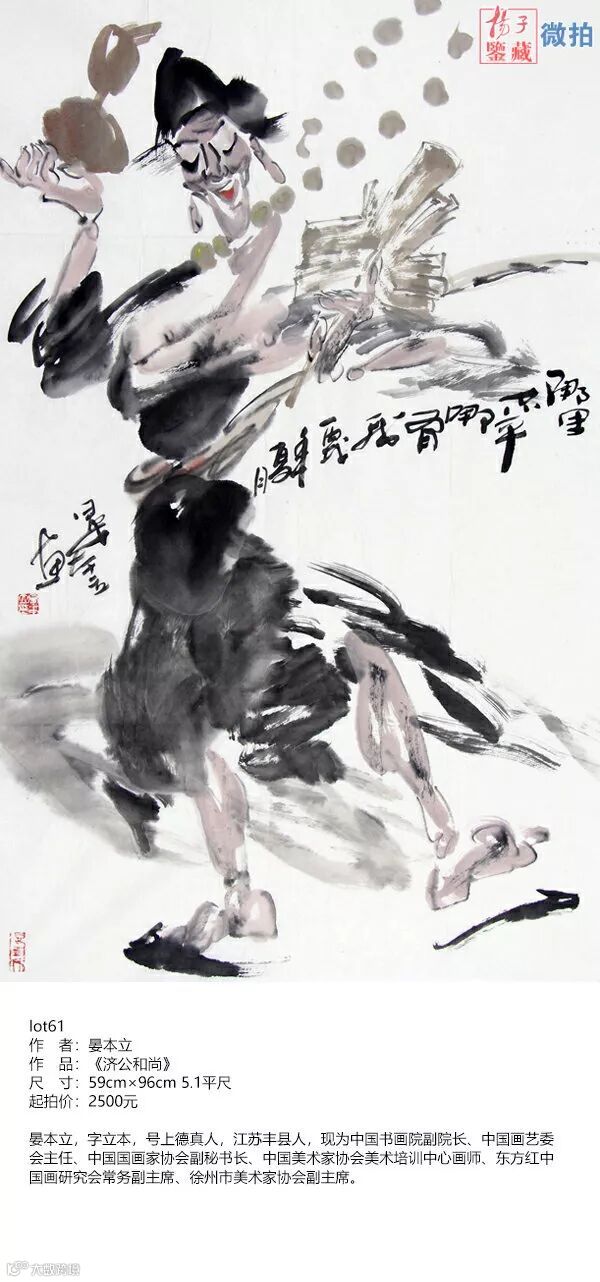 杨子
鉴藏
微拍
哪里不平哪有我
lot61
作 者：晏本立
作 品：《济公和尚》
尺 寸：59cm×96cm 5.1平尺
起拍价：2500元
晏本立，字立本，号上德真人，江苏丰县人，现为中国书画院副院长、中国画艺委
会主任、中国国画家协会副秘书长、中国美术家协会美术培训中心画师、东方红中
国画研究会常务副主席、徐州市美术家协会副主席。
大数跨境